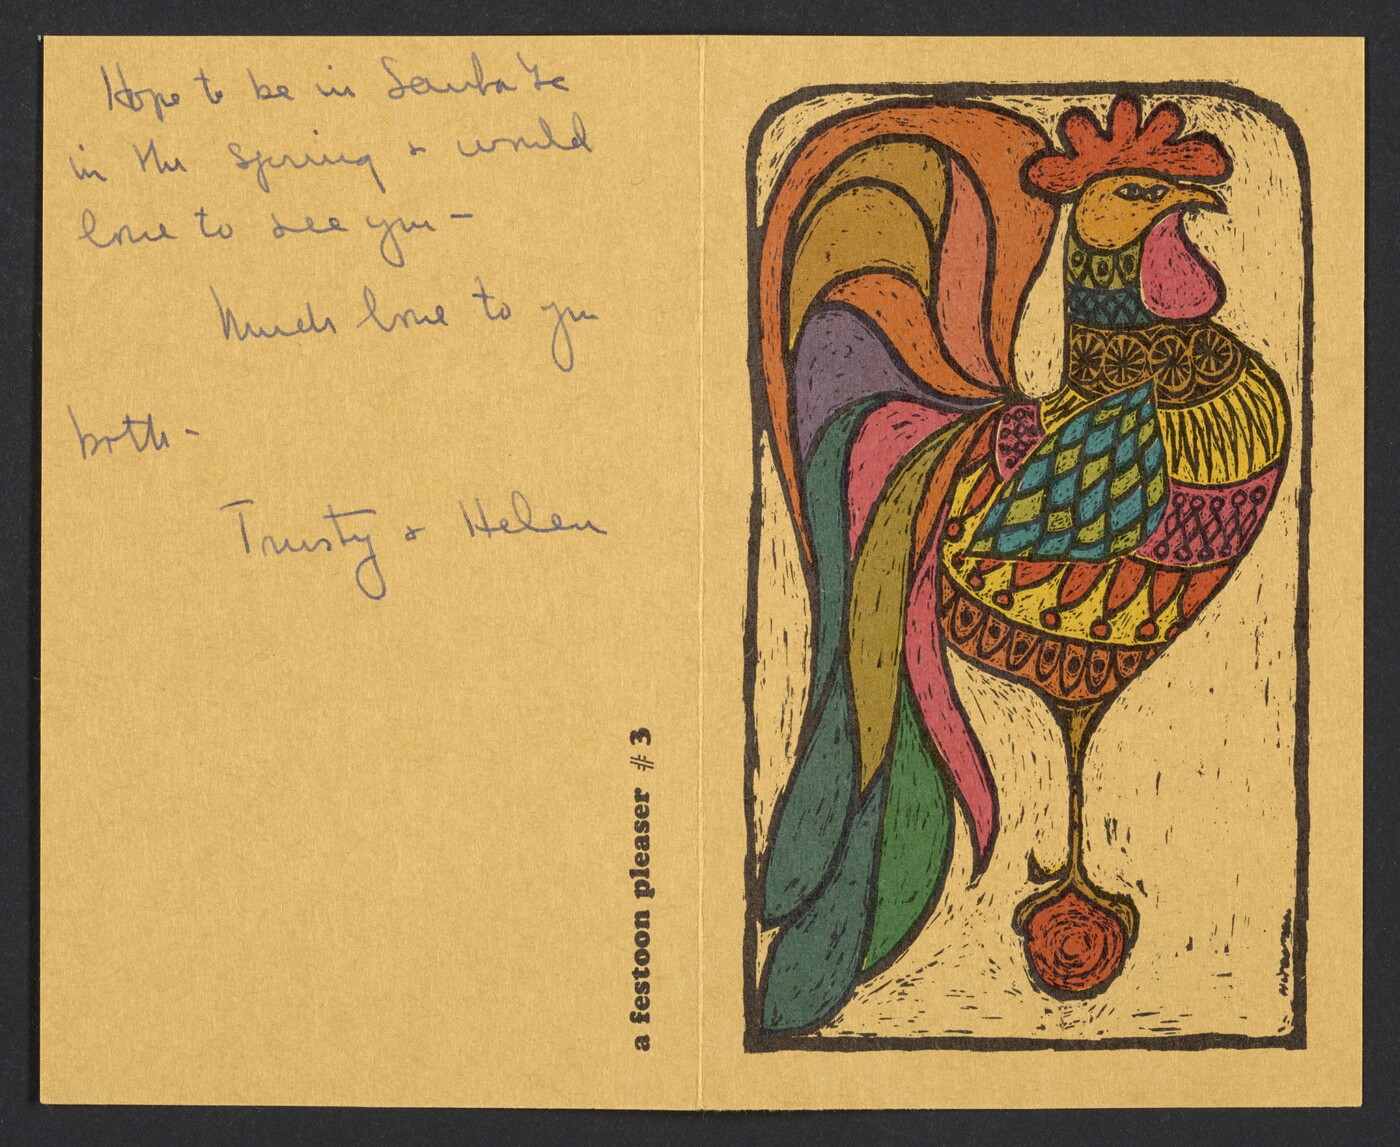 Hope to be in Santa Fe
in the spring & would
love to see you —
Much love to you
both —
Trusty & Helen
a festoon pleaser # 3